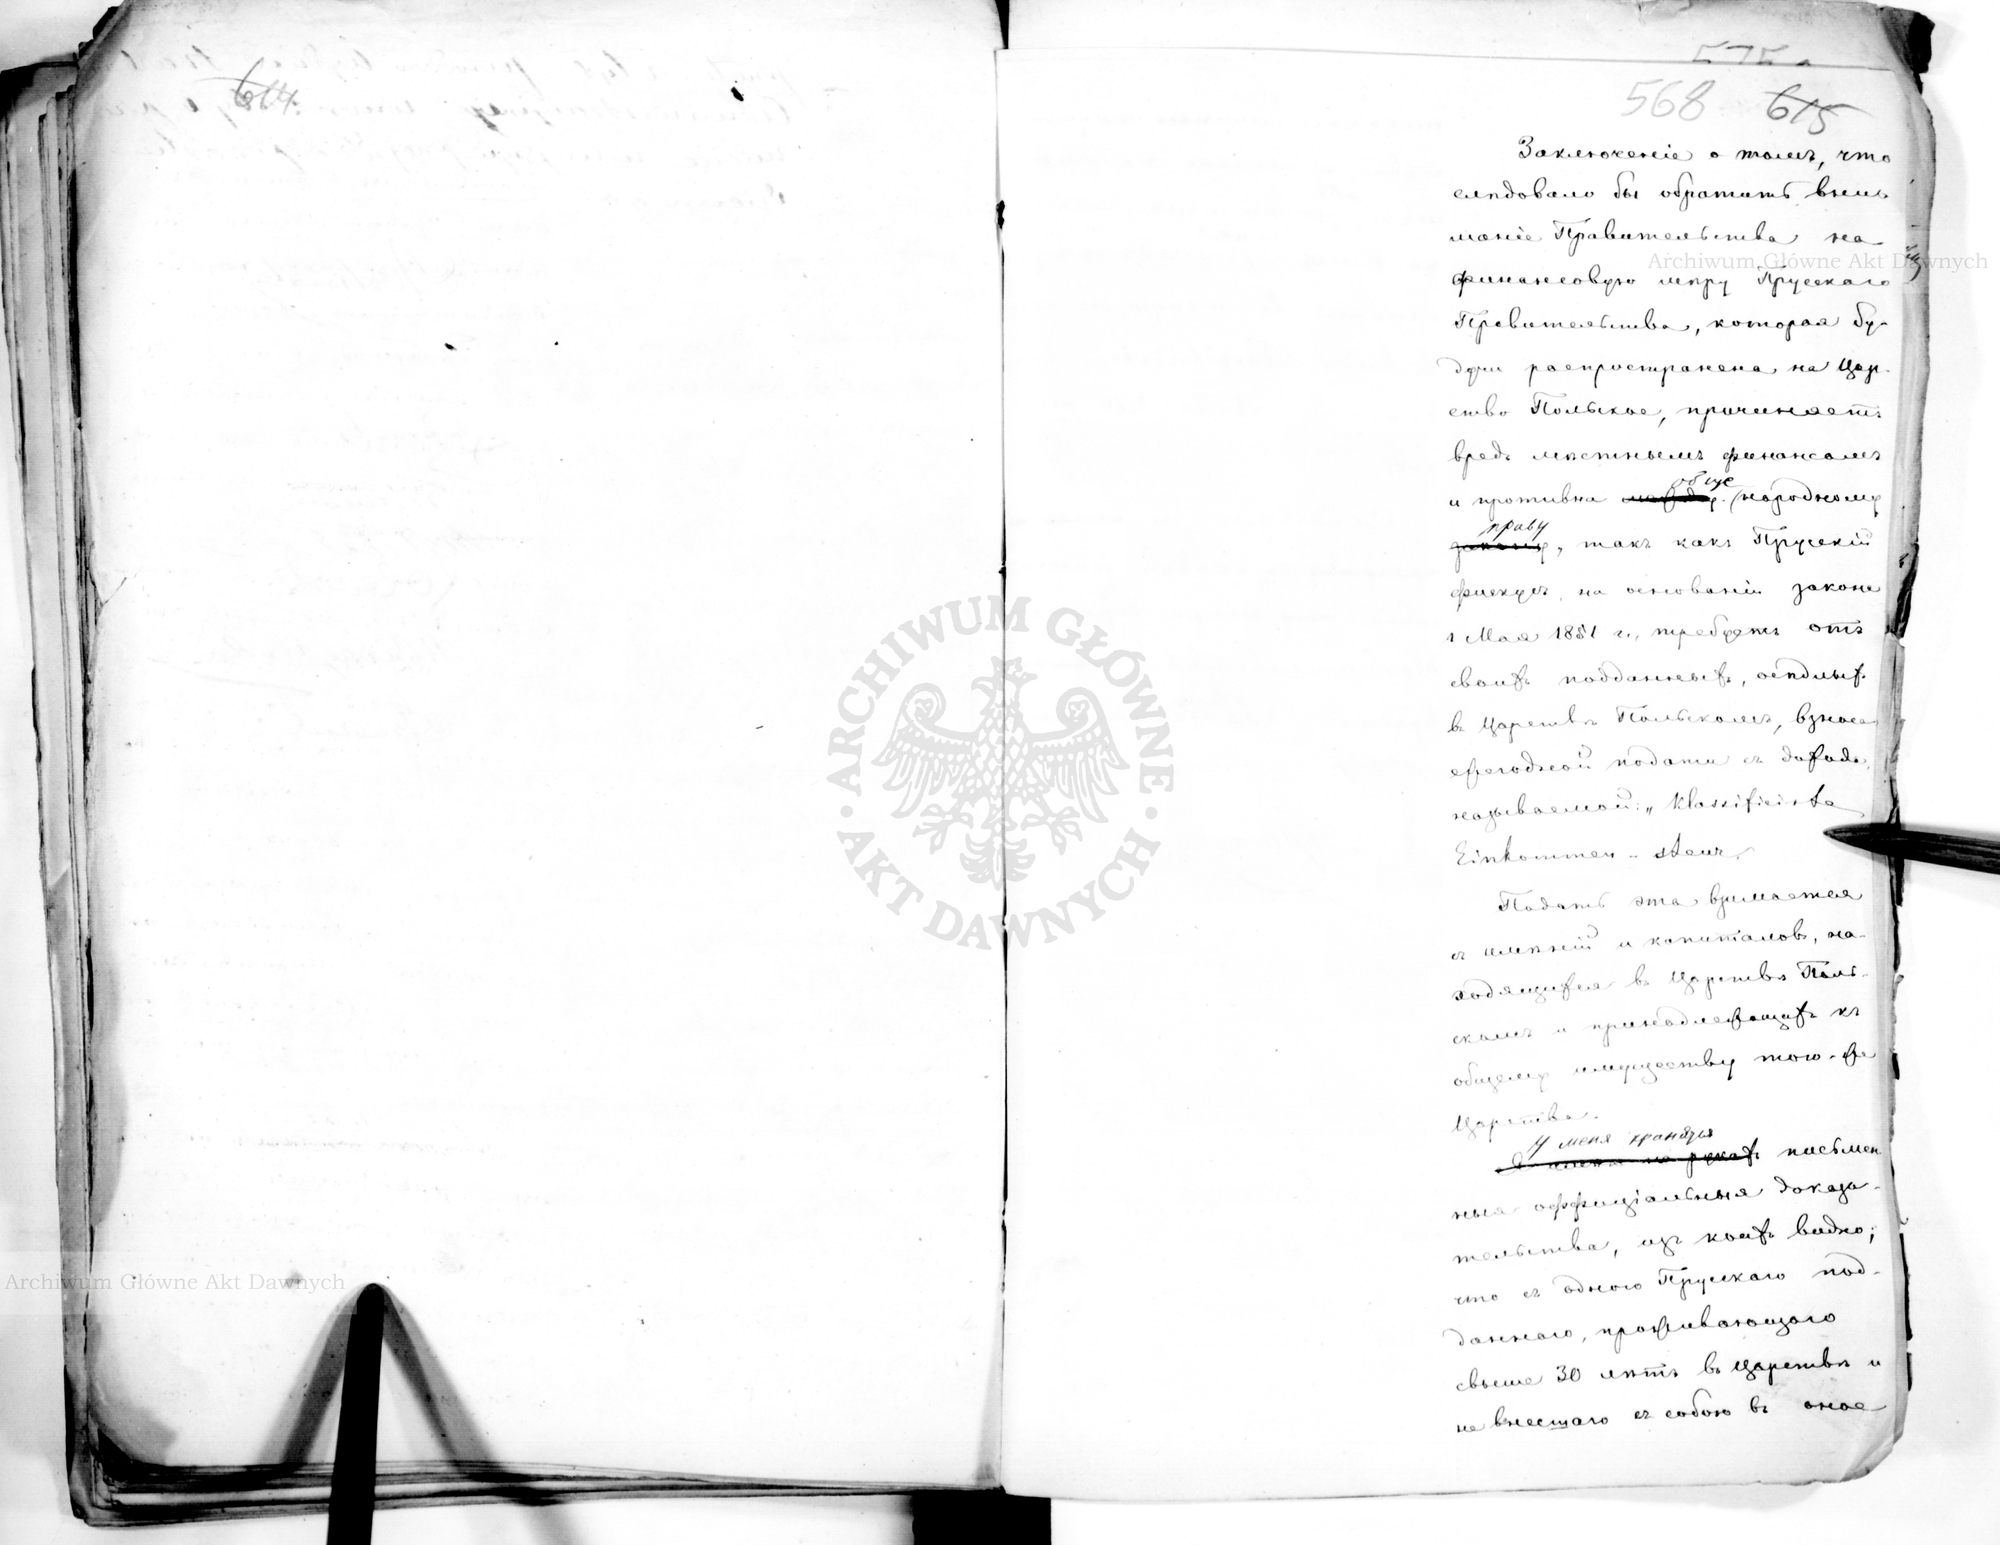 614
575
568 615
Заключеніе о томъ, что
слѣдовало бы обратить вни-
маніе Правительства на
финансовую мѣру Прусскаго
Правительства, которая бу-
дучи распространена на Цар-
ство Польское, причиняетъ
вредъ мѣстнымъ финансамъ
обще
и противна народному
праву
закону, такъ какъ Прускій
фискусъ, на основаніи закона
1 Мая 1851 г., требуетъ отъ
своихъ подданныхъ, осѣдлыхъ
въ Царствѣ Польскомъ, взноса
ежегодной подати съ дохода,
называемой: „Klassificirte
Einkommen-steur.
Подать эта взимается
съ имѣній и капиталовъ, на-
ходящихся въ Царствѣ Поль-
скомъ и принадлежащихъ къ
общему имуществу того-же
Царства.
У меня хранятся
письмен
ныя оффиціальныя доказа-
тельства, изъ коихъ видно;
что съ одного Прусскаго под-
даннаго, проживающаго
свыше 30 лѣтъ въ Царствѣ и
не внесшаго съ собою въ оное
Archiwum Główne Akt Dawnych
Archiwum Główne Akt Dawnych
ARCHIWUM GŁÓWNE
AKT DAWNYCH